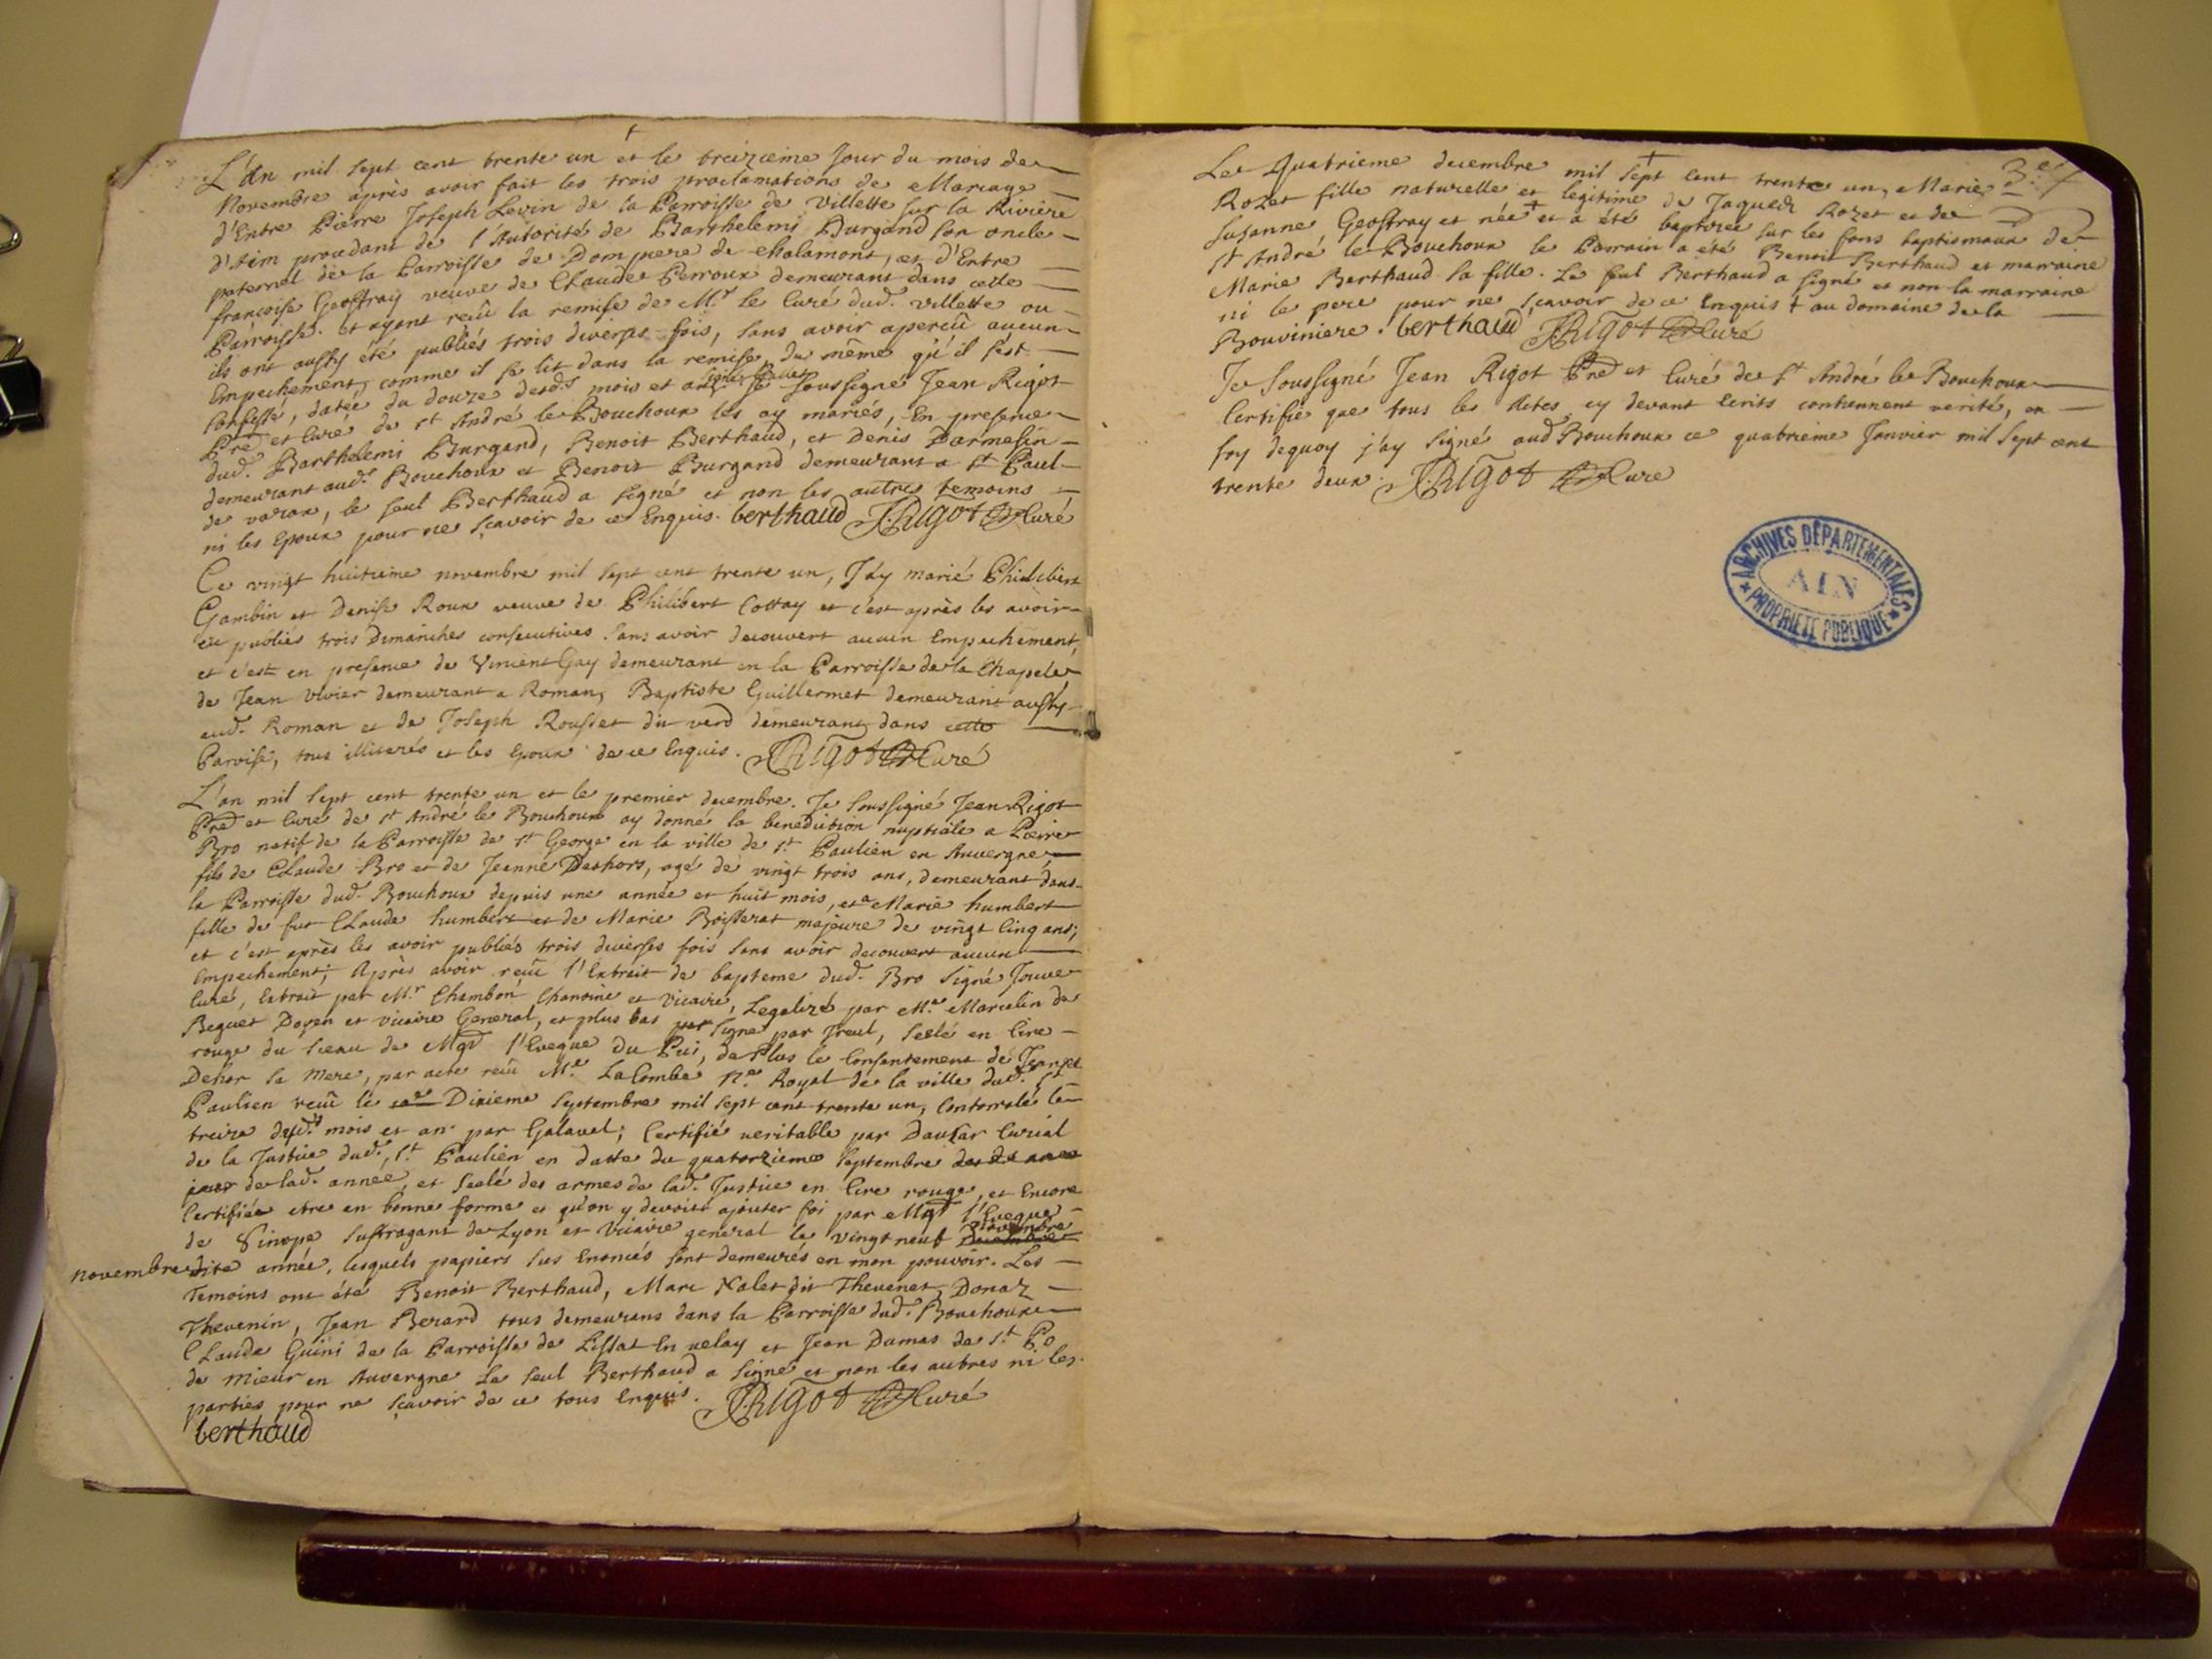 L'an mil sept cent trente un et le treizieme jour du mois de
Novembre après avoir fait les trois proclamations de Mariage
d'Entre Pierre Joseph Levin de la Parroisse de Villette sur la Rivière
d'Aim procedant de l'Autorité de Barthelemi Burgand son oncle
paternel de la Parroisse de Dompiere de chalamont, et d'Entre
françoise Geoffray veuve de Claude Perroux demeurant dans cette
Parroisse. et ayant reçû la remise de Mr. le Curé dud. villette ou
ils ont aussy été publiés trois diverses fois, sans avoir aperçû aucun
Empechement, comme il se lit dans la remise, de même qu'il s'est
confessé, datée du douze desds. mois et an, Je soussigné Jean Rigot
Pre et Curé de st André le Bouchoux les ay mariés, En presence
dud. Barthelemi Burgand, Benoit Berthaud, et Denis Darmesin
demeurant aud. Bouchoux et Benoit Burgand demeurant a st Paul
de varax, le seul Berthaud a signé et non les autres temoins
ni les Epoux pour ne sçavoir de ce Enquis. berthaud J. Rigot Curé
Ce vingt huitieme novembre mil sept cent trente un, J'ay marié Philibert
Gambin et Denise Roux veuve de Philibert Cottay et c'est après les avoir
eü publiés trois Dimanches consecutives sans avoir decouvert aucun Empechement,
et c'est en presence de Vincent Gay demeurant en la Parroisse de la Chapele
de Jean Vivier demeurant a Roman, Baptiste Guillermet demeurant aussy
aud. Roman et de Joseph Rousset du verd demeurant dans cette
Parroise, tous illiterés et les epoux de ce Enquis. J. Rigot Curé
L'an mil sept cent trente un et le premier decembre. Je soussigné Jean Rigot
Pre et Curé de st André le Bouchoux ay donné la benediction nuptiale a Pierre
Bro natif de la Parroisse de st George en la ville de st. Paulien en Auvergne
fils de Claude Bro et de Jeanne Deshors, agé de vingt trois ans, demeurant dans
la Parroisse dud. Bouchoux depuis une année et huit mois, et a Marie humbert
fille de fut Claude humbert et de Marie Boisserat majeure de vingt cinq ans;
et c'est après les avoir publiés trois diverses fois sans avoir decouvert aucun
Empechement; Après avoir reçû l'Extrait de bapteme dud. Bro signé Jouve
Curé, Extrait par Mr. Chambon Chanoine et Vicaire, Legalizé par Me. Marcelin de
Beguet Doyen et vicaire General, et plus bas signé par Treul, seelé en Cire
rouge du sceau de Mgr l'Eveque du Pui, de Plus le Consentement de Jeanne
Dehor sa mere, par acte reçu Me. LaCombe Nre. Royal de la ville dud. st
Paulien reçû le Dixieme septembre mil sept cent trente un, Controrolé le
treize desds. mois et an par Galavel; Certifié veritable par Dauzar Curial
de la Justice dud. st. Paulien en datte du quatorzieme septembre
de lad. année, et seelé des armes de lad. Justice en Cire rouge, et Encore
Certifiée etre en bonne forme et qu'on y devoit ajouter foi par Mgr l'Eveque
de Sinope suffragant de Lyon et Vicaire general le vingt neuf novembre
novembre dite année, lesquels papiers sus Enoncés sont demeurés en mon pouvoir. Les
Temoins ont été Benoit Berthaud, Marc Nalet dit Thevenet, Donaz
Thevenin, Jean Berard tous demeurans dans la Parroisse dud. Bouchoux
Claude Guini de la Parroisse de Lissat En velay et Jean Dumas de st. Po
de Mieur en Auvergne Le seul Berthaud a signé et non les autres ni les
parties pour ne sçavoir de ce tous Enquis. J. Rigot Curé
berthaud
Le Quatrieme decembre mil sept cent trente un, Marie
Rozet fille naturelle et legitime de Jaques Rozet et de
Susanne Geoffray et née + et a été baptizée sur les fons baptismaux de
st André le Bouchoux le Parrain a été Benoit Berthaud et marraine
Marie Berthaud sa fille. Le seul Berthaud a signé et non la marraine
ni le pere pour ne sçavoir de ce Enquis + au domaine de la
Bouviniere. berthaud J. Rigot Curé
Je soussigné Jean Rigot Pre et Curé de st André le Bouchoux
Certifie que tous les Actes cy devant Ecrits contiennent verité, en
foy dequoy j'ay signé aud Bouchoux ce quatrieme Janvier mil sept cent
trente deux. J. Rigot Curé
ARCHIVES DÉPARTEMENTALES
AIN
PROPRIÉTÉ PUBLIQUE